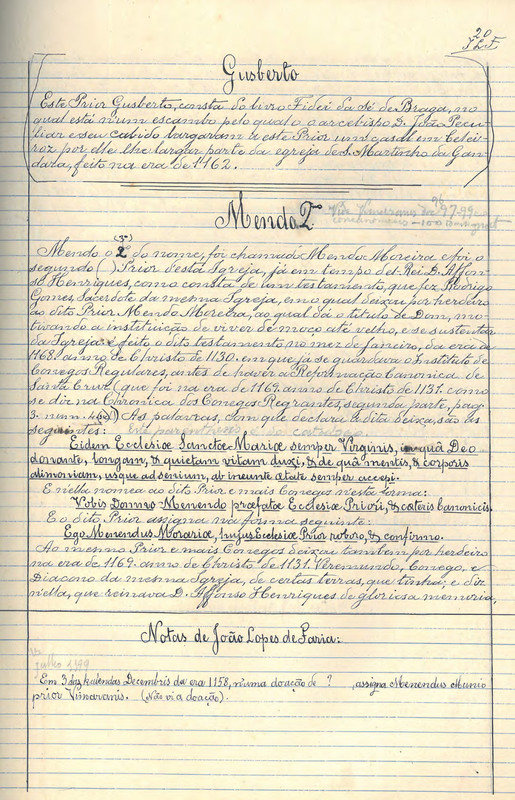 20
J L F
Gusberto
Este Prior Gusberto, consta do livro Fidei da Sé de Braga, no
qual está num escambo pelo qual o arcebispo D. João Pecu-
liar e seu cabido largaram a este Prior um casal em Celei-
roz por elle lhe largar parte da egreja de S. Martinho da Gan-
dara, feito na era de 1462.
Mendo 2º
96
97-99
(3º)
Mendo o 2º do nome, foi chamado Mendo Moreira e foi o
segundo ( ) Prior desta Igreja, já em tempo del-Rei D. Affon-
so Henriques, como consta de um testamento, que fez Rodrigo
Gomes, Sacerdote da mesma Igreja, em o qual deixou por herdeiro
ao dito Prior Mendo Moreira, ao qual dá o titulo de Dom, mo-
tivando a instituição de viver de moço até velho, e se sustentar
da Igreja: é feito o dito testamento no mez de Janeiro, da era de
1168. anno de Christo de 1130. em que já se guardava o Instituto de
Conegos Regulares, antes de haver a Reformação Canonica de
Santa Cruz (que foi na era de 1169. anno de Christo de 1131. como
se diz na Chronica dos Conegos Regrantes, segunda parte, pag.
3. num. 4.) As palavras, com que declara a dita deixa, são as
seguintes:
Eidem Ecclesiæ Sanctæ Mariæ semper Virginis, in quâ Deo
donante, longam, & quietam vitam duxi, & de quâ mentis, & corporis
alimoniam, usque ad senium, ab ineunte ætate semper accepi.
E nella nomea ao dito Prior e mais Conegos nesta forma:
Vobis Domno Menendo præfatæ Ecclesiæ Priori, & cæteris Canonicis.
E o dito Prior assigna na forma seguinte:
Ego Menendus Morariæ, hujus Ecclesiæ Prior roboro, & confirmo.
Ao mesmo Prior e mais Conegos deixou tambem por herdeiro
na era de 1169. anno de Christo de 1131. Veremundo, Conego, e
Diacono da mesma Igreja, de certas terras, que tinha; e diz
nella, que reinava D. Affonso Henriques de gloriosa memoria,
Notas de João Lopes de Faria:
julho 1399
Em 3 das kalendas Decembris da era 1158, n'uma doação de ? , assigna Menendus Munio
prior Vimaranis. (Não vi a doação).